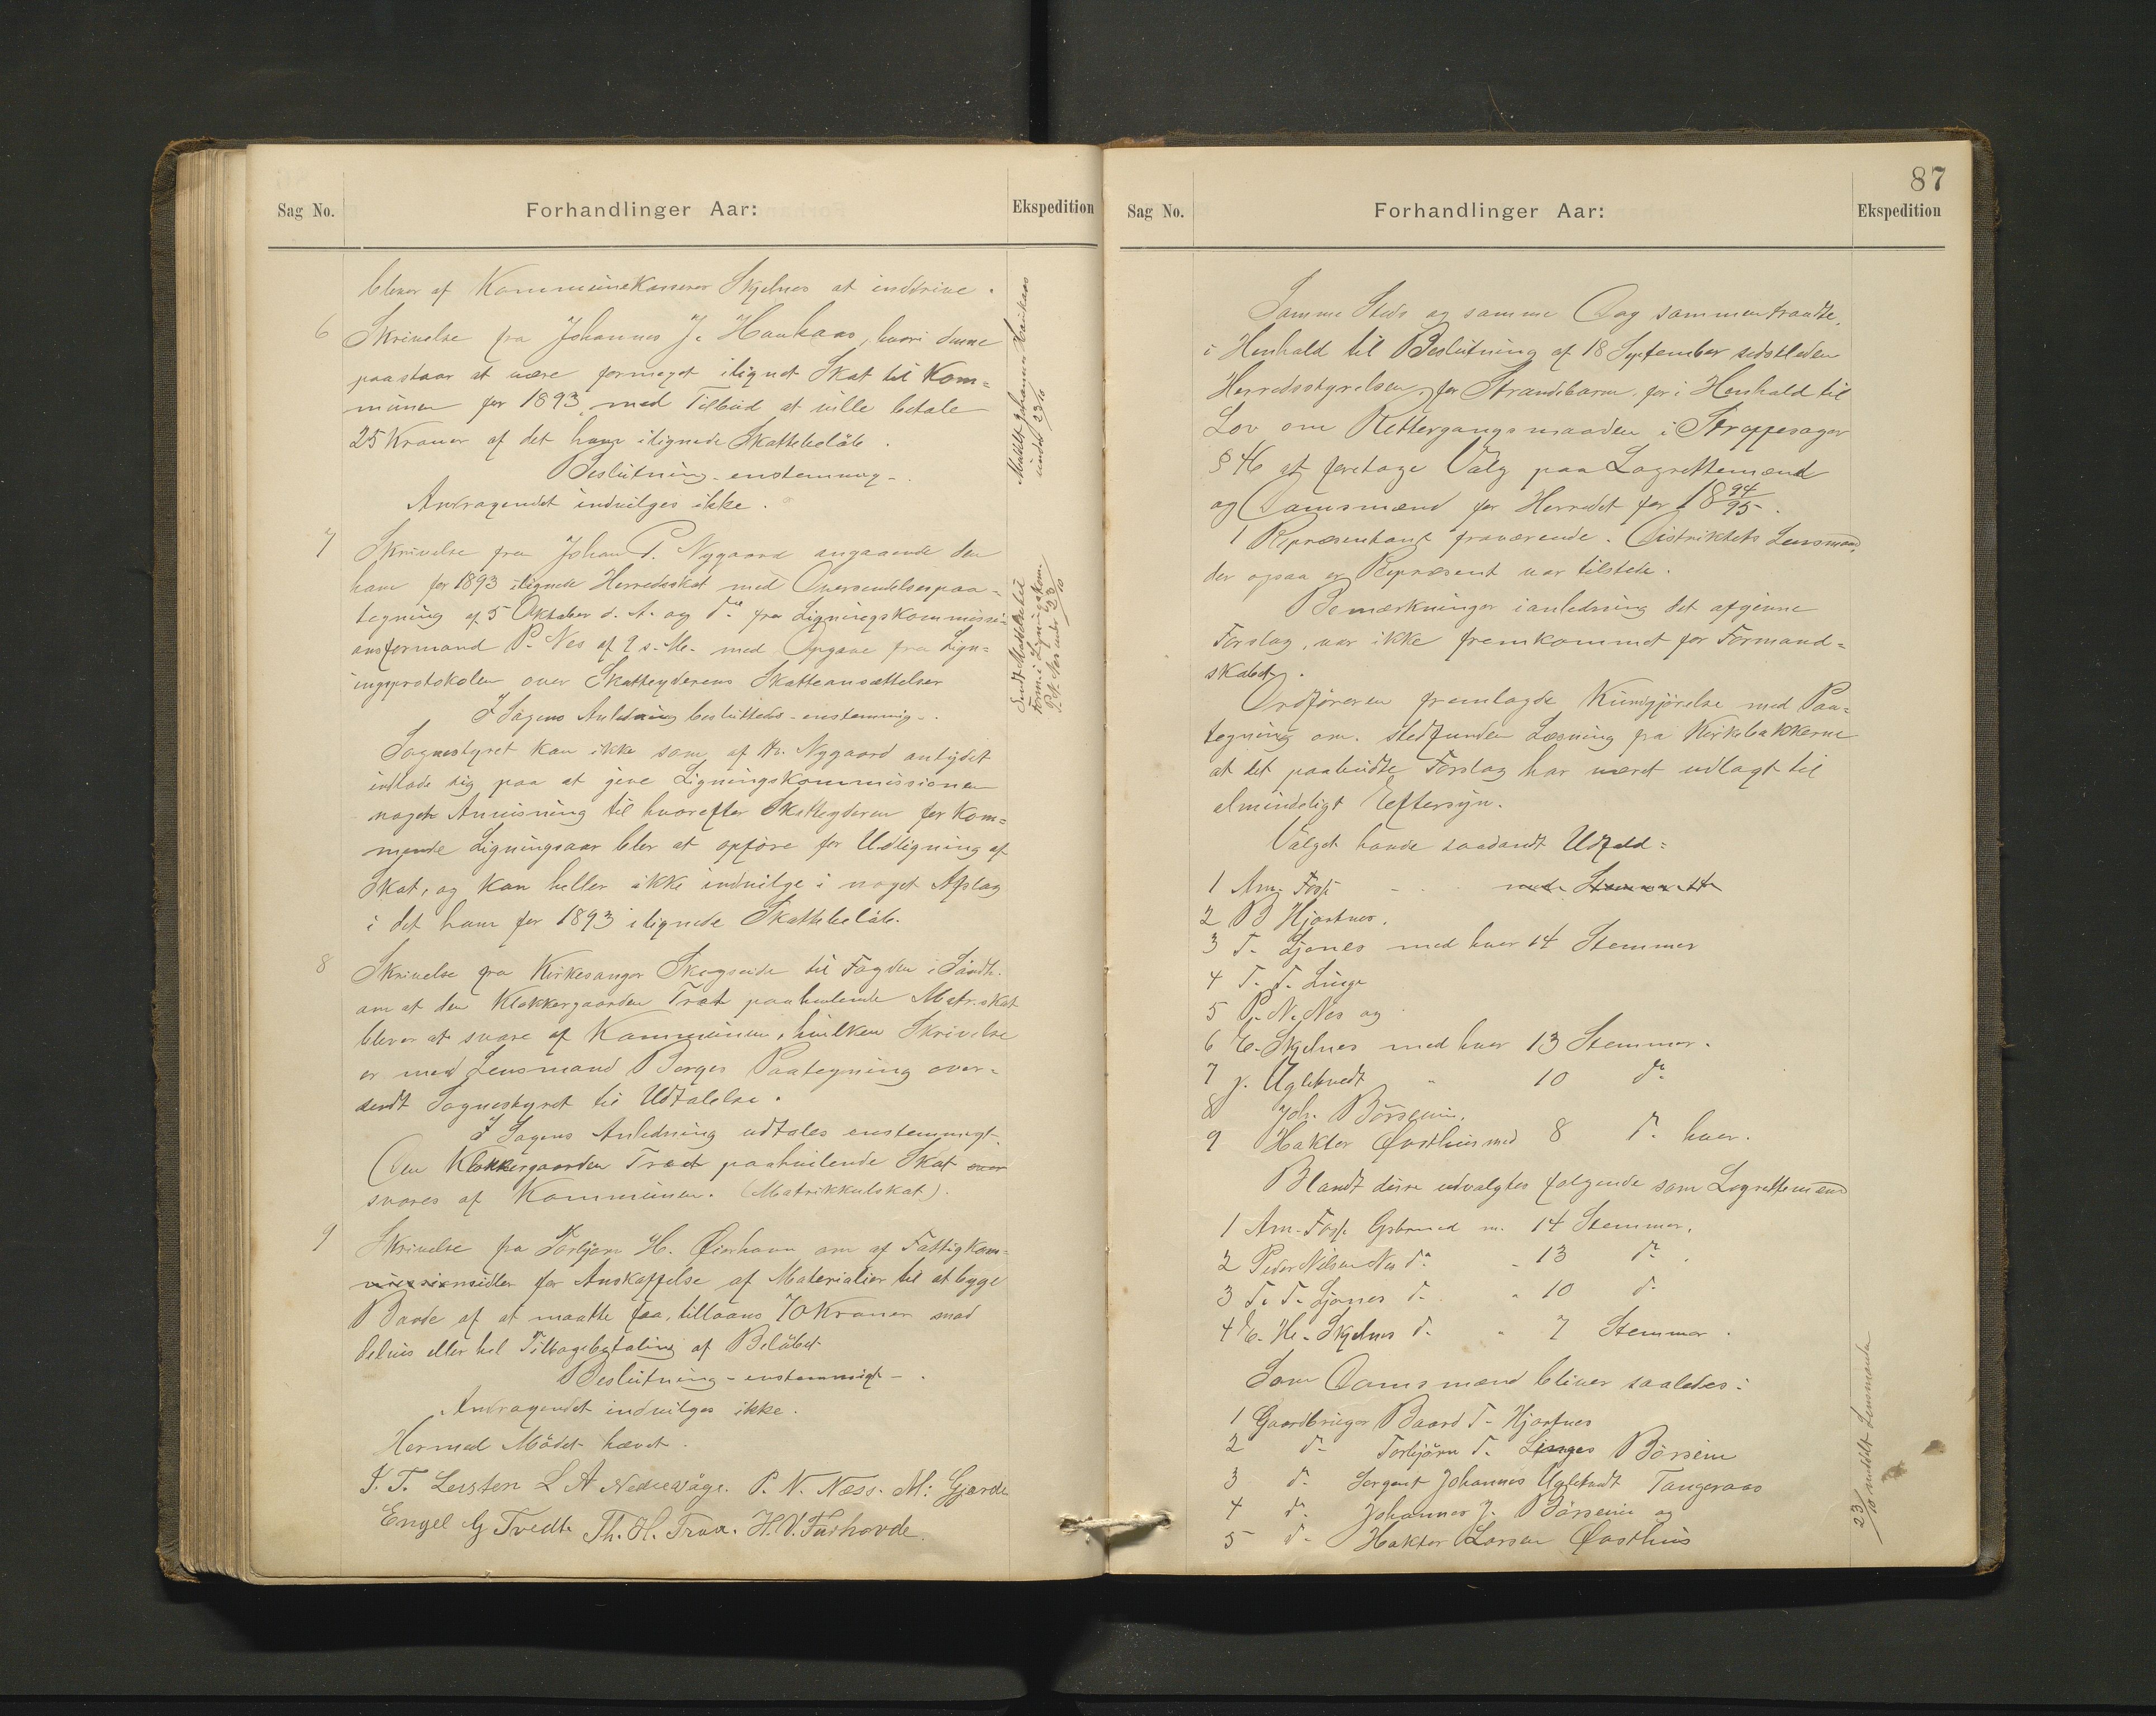 Sag No.
Forhandlinger Aar:
Ekspedition
bliver af Kommunekasserer Skjelnes at inddrive.
6 Skrivelse fra Johannes J. Haukaas, hvori denne
paastaar at være formeget ilignet Skat til Kom=
munen for 1893, med Tilbud at ville betale
25 Kroner af det ham ilignede Skattebeløb.
Beslutning - enstemmig -.
Andragendet indvilges ikke.
Meddelt Johannes Haukaas
under 23/10
7 Skrivelse fra Johan P. Nygaard angaaende den
ham for 1893 ilignede Herredsskat med Oversendelsespaa=
tegning af 5 Oktober d. A. og do fra Ligningskommissi=
onsformand P. Nes af 9 s. M. med Opgave fra Lign=
ingsprotokolen over Skatteyderens Skatteansættelser
I Sagens Anledning besluttedes - enstemmig -.
Sognestyret kan ikke som af Hr. Nygaard antydet
indlade sig paa at give Ligningskommissionen
nogen Anvisning til hvorefter Skatteyderen for kom=
mende Ligningsaar blev at opføre for Udligning af
Skat, og kan heller ikke indvilge i noget Afslag
i det ham for 1893 ilignede Skattebeløb.
Sendt Meddelelse til
Form. i Ligningskom.
P. N. Nes under 23/10
8 Skrivelse fra Kirkesanger Skogseide til Fogden i Søndh.
om at den Klokkergaarden Træt paahvilende Matr.skat
bliver at svare af Kommunen, hvilken Skrivelse
er med Lensmand Berges Paategning over=
sendt Sognestyret til Udtalelse.
I Sagens Anledning udtales enstemmigt.
Den Klokkergaarden Træt paahvilende Skat
svares af Kommunen. (Matrikkulskat).
9 Skrivelse fra Torbjørn H. Øierhavn om af Fattigkom=
missionsmidler for Anskaffelse af Materialier til at bygge
Baade af at maatte faa tillaans 70 Kroner mod
delvis eller hel Tilbagebetaling af Beløbet
Beslutning - enstemmigt -.
Andragendet indvilges ikke.
Hermed Mødet hævet.
J. T. Leisten L A Nedrevåge. P. N. Næss. M: Gjerde
Engel G Tvedt. Th. H. Traa. H. V. Furhovde.
87
Sag No.
Forhandlinger Aar:
Ekspedition
Samme Steds og samme Dag sammentraadte,
i Henhold til Beslutning af 18 September sidstleden
Herredsstyrelsen for Strandebarm, for i Henhold til
Lov om Rettergangsmaaden i Straffesager
§ 46 at foretage Valg paa Lagrettemænd
og Domsmænd for Herredet for 18 94/95.
1 Repræsentant fraværende. Distriktets Lensmand,
der ogsaa er Repræsent. var tilstede.
Bemærkninger i anledning det afgivne
Forslag, var ikke fremkommet for Formand=
skabet.
Ordføreren fremlagde Kundgjørelse med Paa=
tegning om stedfunden Læsning fra Kirkebakkerne
at det paabudte Forslag har været udlagt til
almindeligt Eftersyn.
Valget havde saadandt Udfald:
1 Am. Fosse
2 B Hjartnes.
3 T. Ljones med hver 14 Stemmer
4 T. T. Linge
5 P. N. Nes og
6 E. Skjelnes med hver 13 Stemmer.
7 J. Ugletvedt " 10 do
8 Joh. Børsheim.
9 Haktor Øvsthus med 8 do hver.
Blandt disse udvalgtes følgende som Lagrettemænd
1 Am. Fosse Grbrmd m. 14 Stemmer.
2 Peder Nilsen Nes do " 13 do.
3 T. T. Ljones do " 10 do
4 E. H. Skjelnes do " 7 Stemmer.
Som Domsmænd bliver saaledes:
1 Gaardbruger Baard T. Hjartnes
2 do Torbjørn T. Linges Børsein
3 do Sergant Johannes Ugletvedt Tangeraas
4 do Johannes J. Børseim og
5 do Haktor Larsen Øvsthus
23/10 meddelt Lensmanden